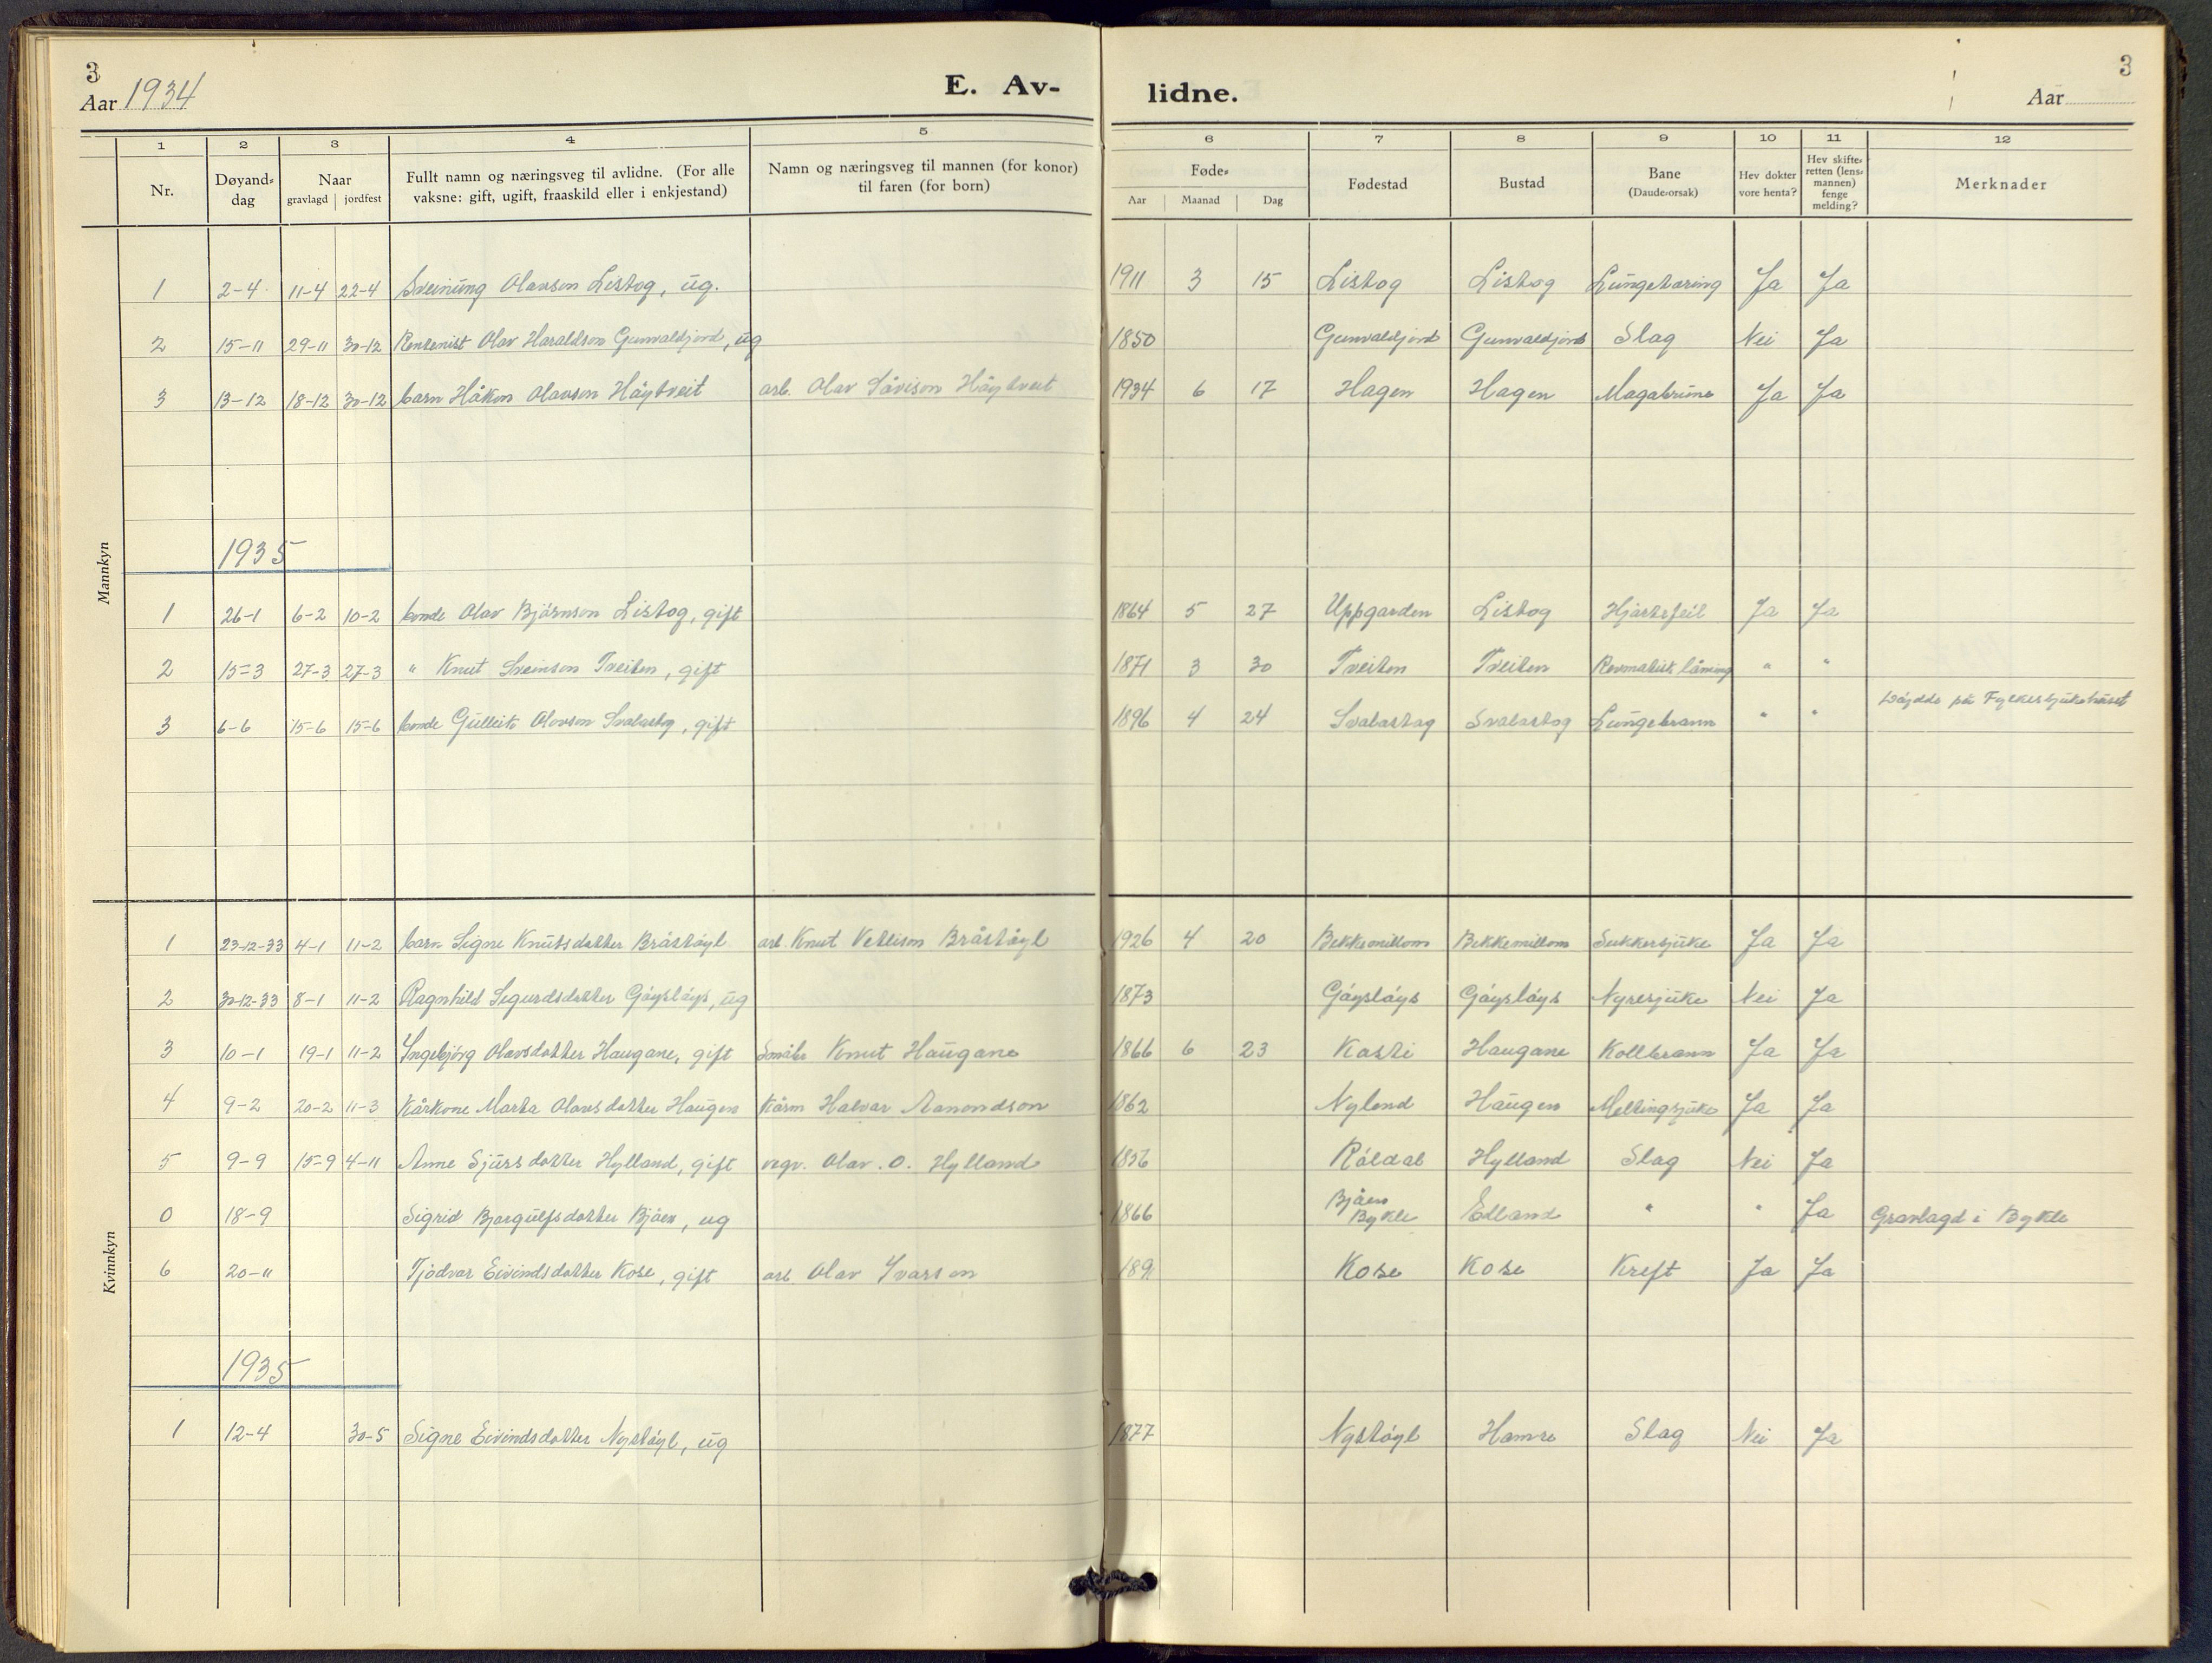 3
Aar 1934
E. Av-
lidne.
3
Aar
1 2 3 4 5 6 7 8 9 10 11 12
Nr. Døyand-dag Naar gravlagd jordfest Fullt namn og næringsveg til avlidne. (For alle vaksne: gift, ugift, fraaskild eller i enkjestand) Namn og næringsveg til mannen (for konor) til faren (for born) Føde- Aar Maanad Dag Fødestad Bustad Bane (Daude-orsak) Hev dokter vore henta? Hev skifteretten (lensmannen) fenge melding? Merknader
Mannkyn
1 2-4 11-4 22-4 Sveinung Olavson Listog, ug. 1911 3 15 Listog Listog Lungetæring Ja Ja
2 15-11 29-11 30-12 Rentenist Olav Haraldson Gunvaldjord, ug 1850 Gunvaldjord Gunvaldjord Slag Nei Ja
3 13-12 18-12 30-12 barn Håkon Olavson Höytveit arb. Olav Såvison Höytveit 1934 6 17 Hagen Hagen Magabrune Ja Ja
1935
1 26-1 6-2 10-2 bonde Olav Björnson Listog, gift 1864 5 27 Uppgarden Listog Hjartefeil Ja Ja
2 15-3 27-3 27-3 " Knut Sveinson Tveiten, gift 1871 3 30 Tveiten Tveiten Revmatisk låming " "
3 6-6 15-6 15-6 bonde Gulleik Olovson Svalastog, gift 1896 4 24 Svalastog Svalastog Lungebrann " " Döydde på Fylkessjukehuset
Kvinnkyn
1 23-12-33 4-1 11-2 barn Signe Knutsdotter Bråstöyl arb. Knut Vetlison Bråstöyl 1926 4 20 Bekkemillom Bekkemillom Sukkersjuke Ja Ja
2 30-12-33 8-1 11-2 Ragnhild Segurdsdotter Göyslöys, ug 1873 Göyslöys Göyslöys Nyresjuke Nei Ja
3 10-1 19-1 11-2 Yngebjörg Olavsdotter Haugane, gift Småbr Knut Haugane 1866 6 23 Kasti Haugane Kollbrann Ja Ja
4 9-2 20-2 11-3 Kårkone Marta Olavsdotter Haugen Kårm Halvar Aanondson 1862 Nylend Haugen Meltingsjuke Ja Ja
5 9-9 15-9 4-11 Anne Sjursdotter Hylland, gift vegv. Olav. O. Hylland 1856 Röldal Hylland Slag Nei Ja
0 18-9 Sigrid Bjorgulfsdotter Bjåen, ug 1866 Bjåen Bykle Edland " " Ja Gravlagd i Bykle
6 20-11 Tjodvar Eivindsdotter Kose, gift arb Olav Yvarson 189 Kose Kose Kreft Ja Ja
1935
1 12-4 30-5 Signe Eivindsdotter Nystöyl, ug 1877 Nystöyl Hamre Slag Nei Ja